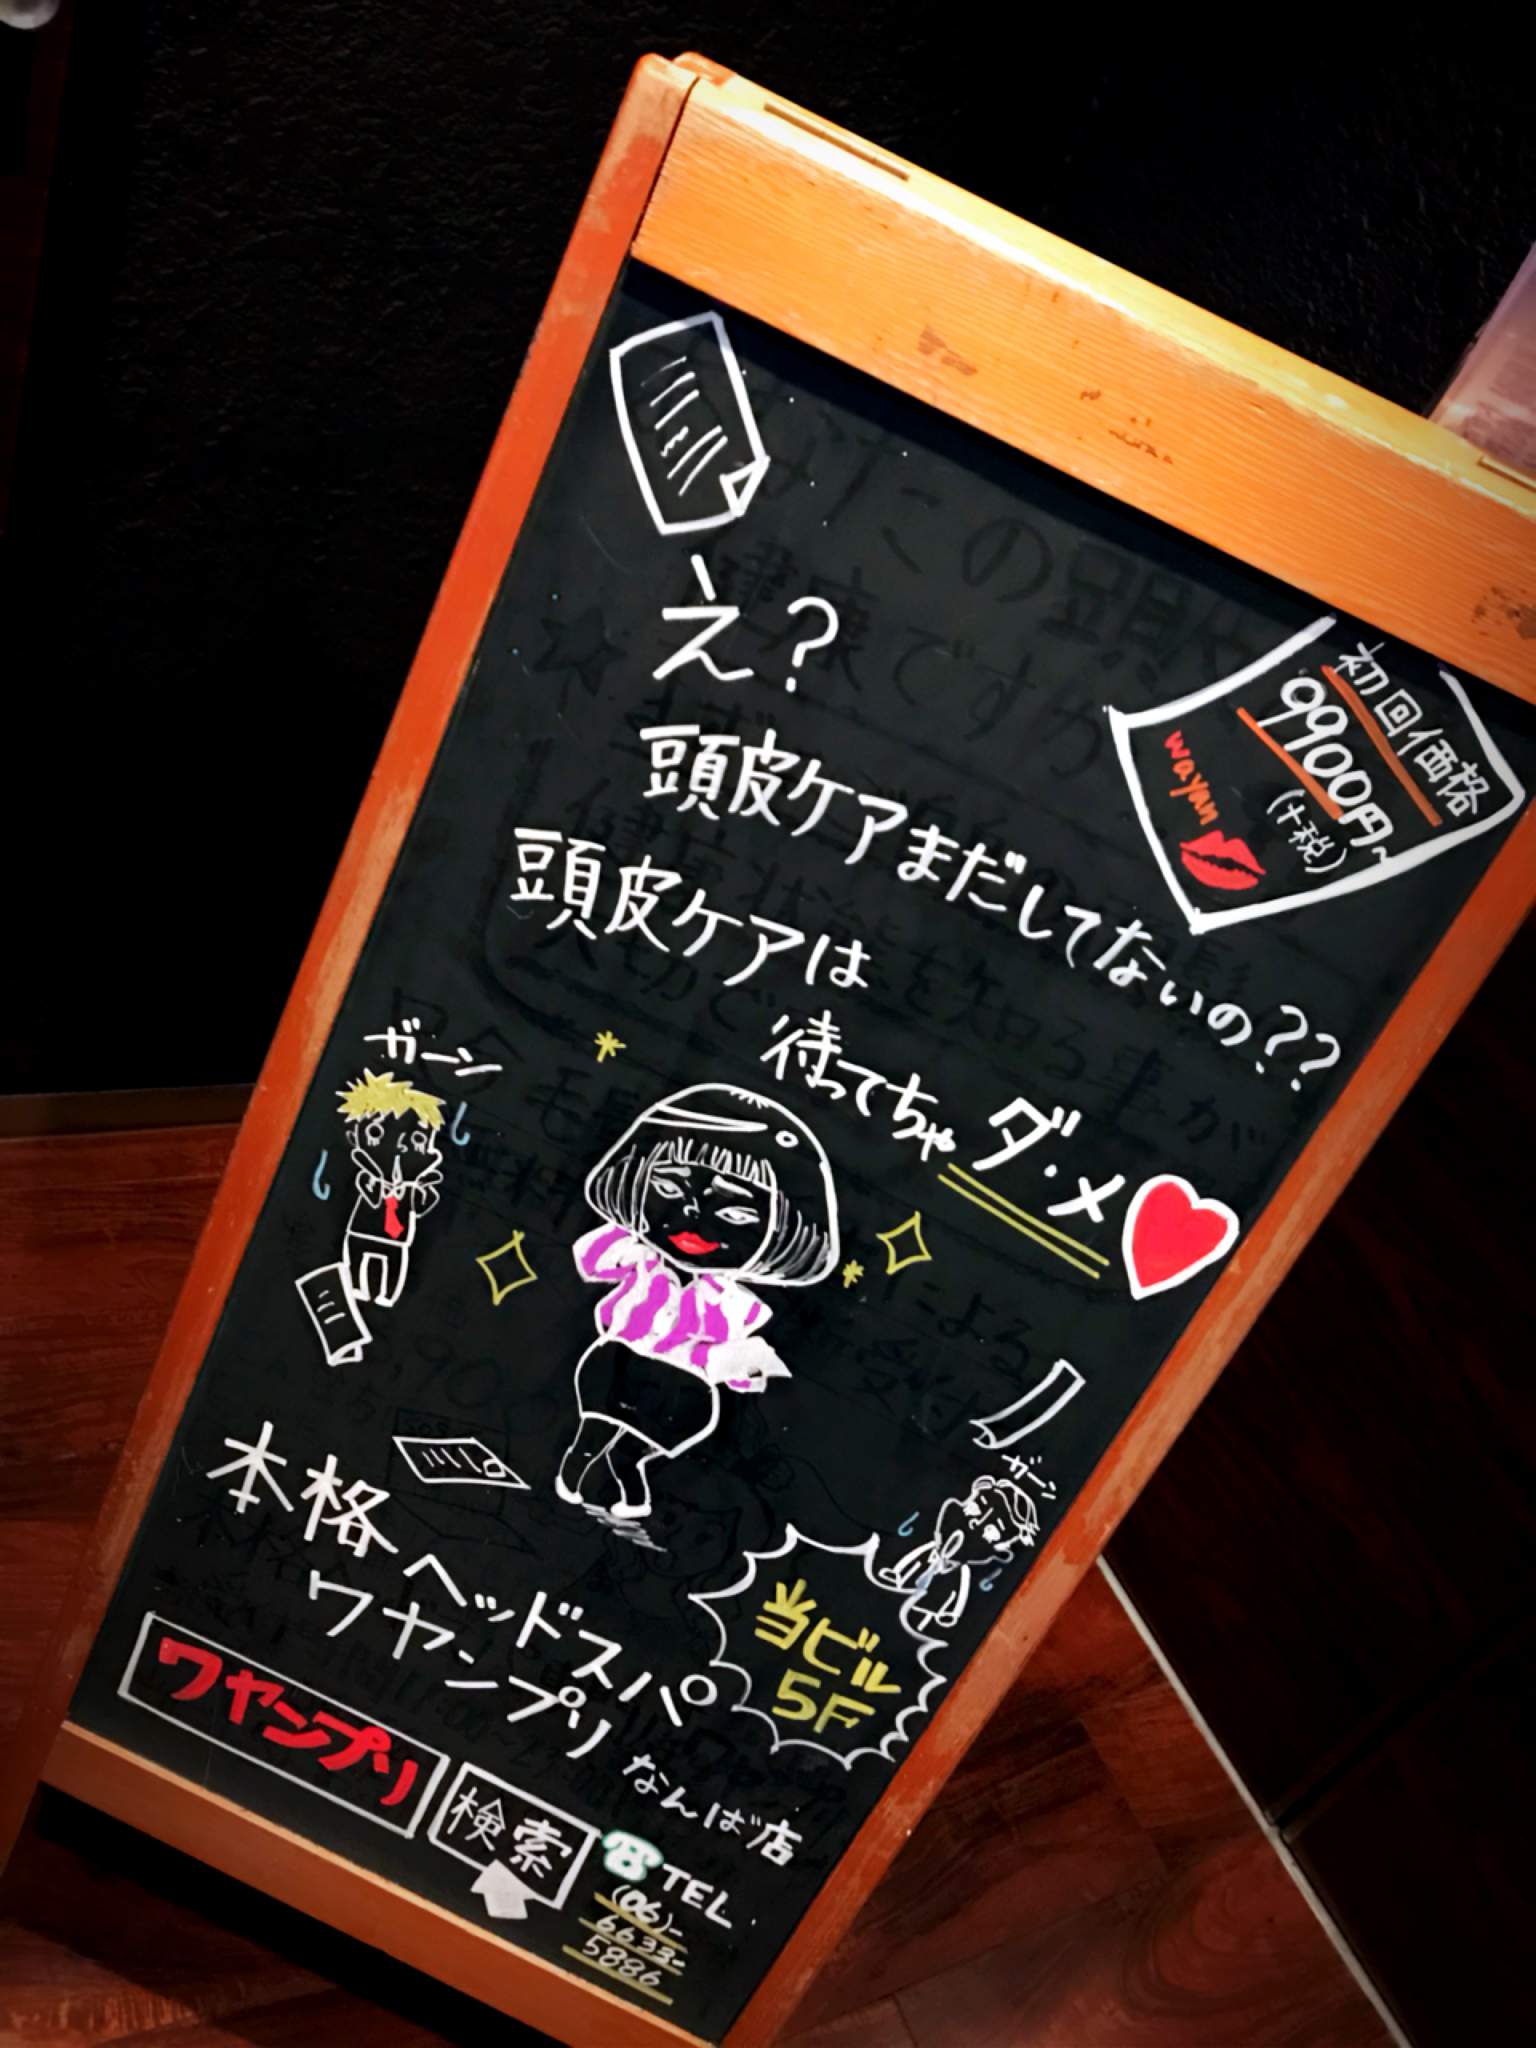 え?
頭皮ケアまだしてないの??
頭皮ケアは
待ってちゃダ・メ
初回価格
9900円〜
(+税)
wayan
ガーン
ガーン
本格ヘッドスパ
ワヤンプリ
なんば店
当ビル
5F
ワヤンプリ
検索
TEL
(06)-
6633-
5886